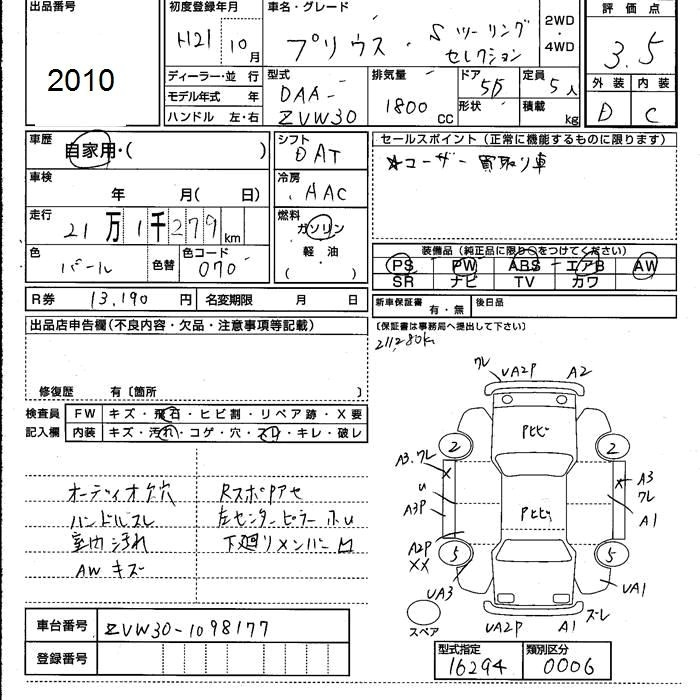 出品番号
2010
初度登録年月
H21 10月
車名・グレード
プリウス・Sツーリング
セレクション
2WD
・
4WD
評価点
3.5
外装 内装
D C
ディーラー・並行
モデル年式 年
ハンドル 左・右
型式
DAA-
ZVW30
排気量
1800 CC
ドア 5D
形状
定員 5人
積載 kg
車歴
自家用・( )
シフト
DAT
セールスポイント(正常に機能するものに限ります)
★ユーザー買取り車
車検
年 月( 日)
冷房
AAC
走行
21万1千279km
燃料
ガソリン
軽油
( ・ )
色
パール
色替
色コード
070
装備品(純正品に限り○をつけてください)
PS PW ABS エアB AW
SR ナビ TV カワ
R券 13,190円
名変期限 月 日
新車保証書 有・無
後日品
出品店申告欄(不良内容・欠品・注意事項等記載)
〔保証書は事務局へ提出して下さい〕
211280k
修復歴 有〔箇所 〕
検査員
記入欄
FW キズ・飛石・ヒビ割・リペア跡・X要
内装 キズ・汚れ・コゲ・穴・スレ・キレ・破レ
オーディオ欠穴
ハンドルスレ
室内汚れ
AWキズ
RスポPアセ
左センターピラー小U
下廻りメンバー凹
ワレ
UA2P A2
Pヒビ
2 2
A3.ワレ
X
U
A3P
A2P
XX
Pヒビ
X A3
ワレ
A1
5 5
UA3
UA1
スペア
UA2P A1 ズレ
車台番号 ZVW30-1098177
登録番号
型式指定
16294
類別区分
0006